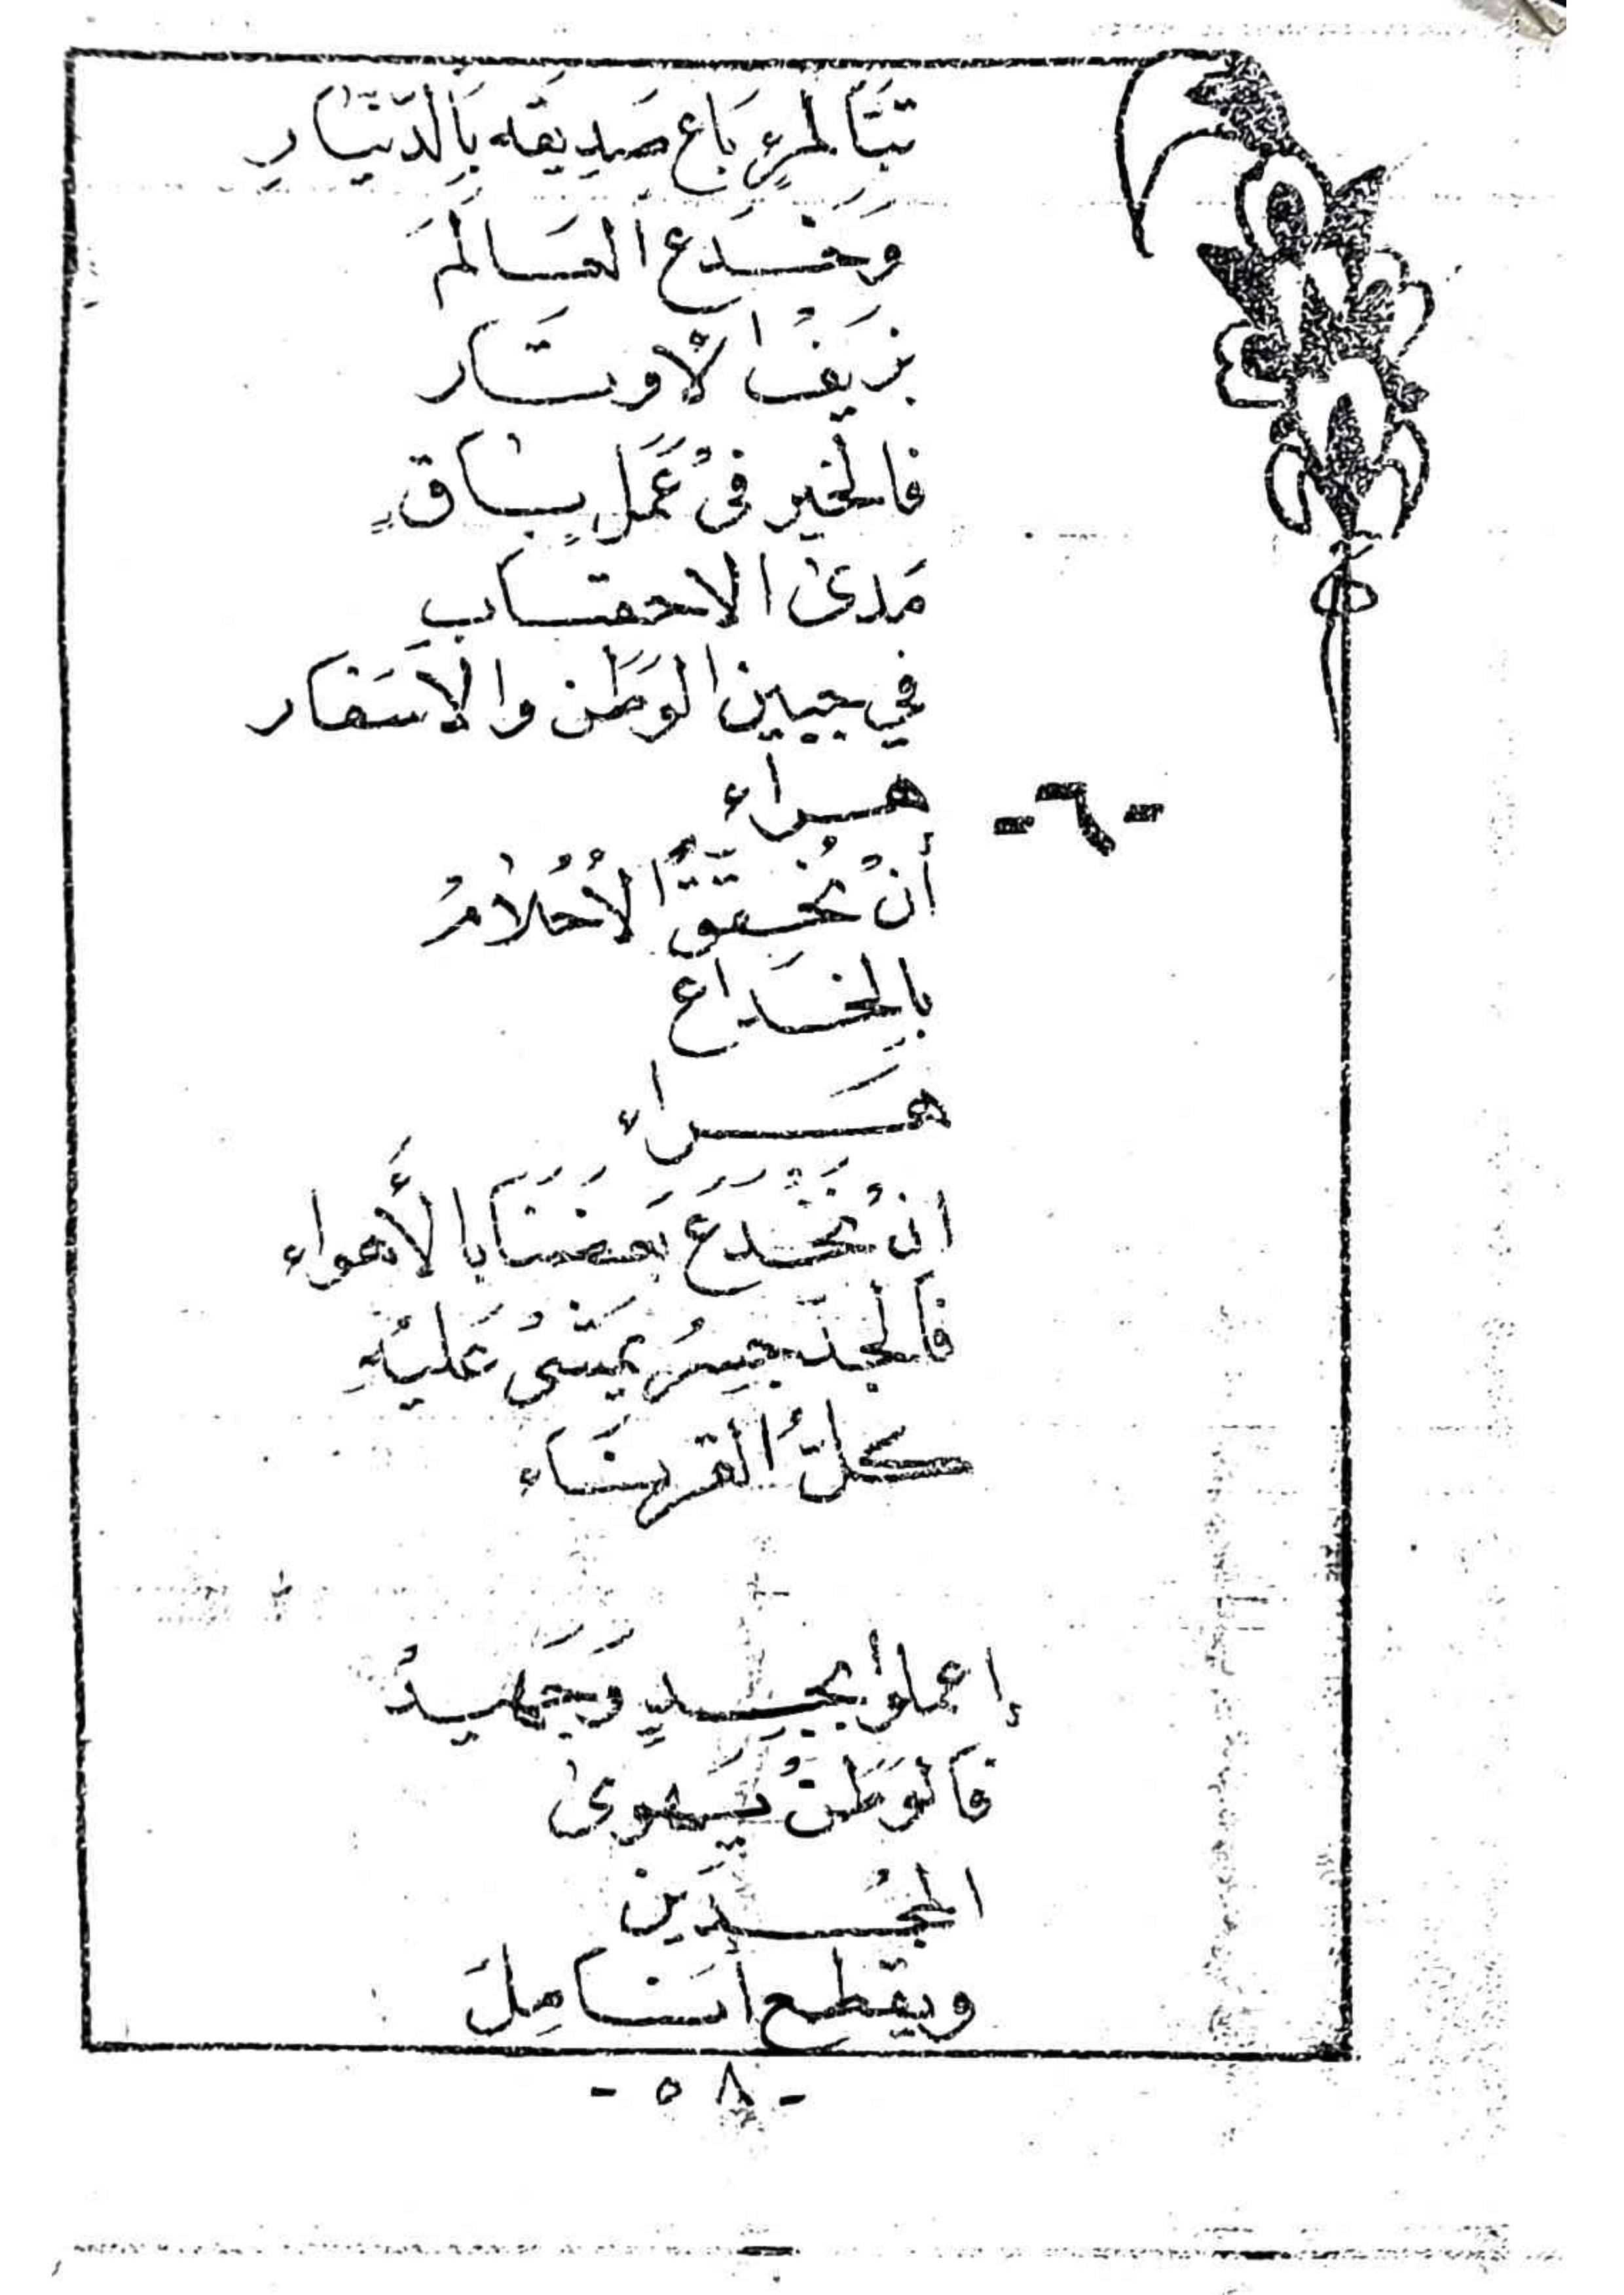 تبَّا لمرءٍ بَاع صَدِيقه بَالدّينَّار
وَخَدَع العَالَمَ
بزَيفْ الأوتَار
فالخَير فىْ عَمَلٍ بَاقٍ
مَدىٰ الاحقَابِ
في جبين الوَطَن والأسَفار
-٦- هراء
أنْ تُحْقَّقَ الأحْلامُ
بالِخدَاع
هَراء
انْ نَخْدَعَ بَعضَنَا بالأَهواء
فَالَجدّ جِسرُ يمَشىْ عَليْهِ
كلُّ القرنَاء
إعملوْا بجِدٍ وَجَهيدْ
فَالوَطَنْ يَهوىٰ
المجُدَين
ويقطع أنَامِلَ
- ٥٨ -